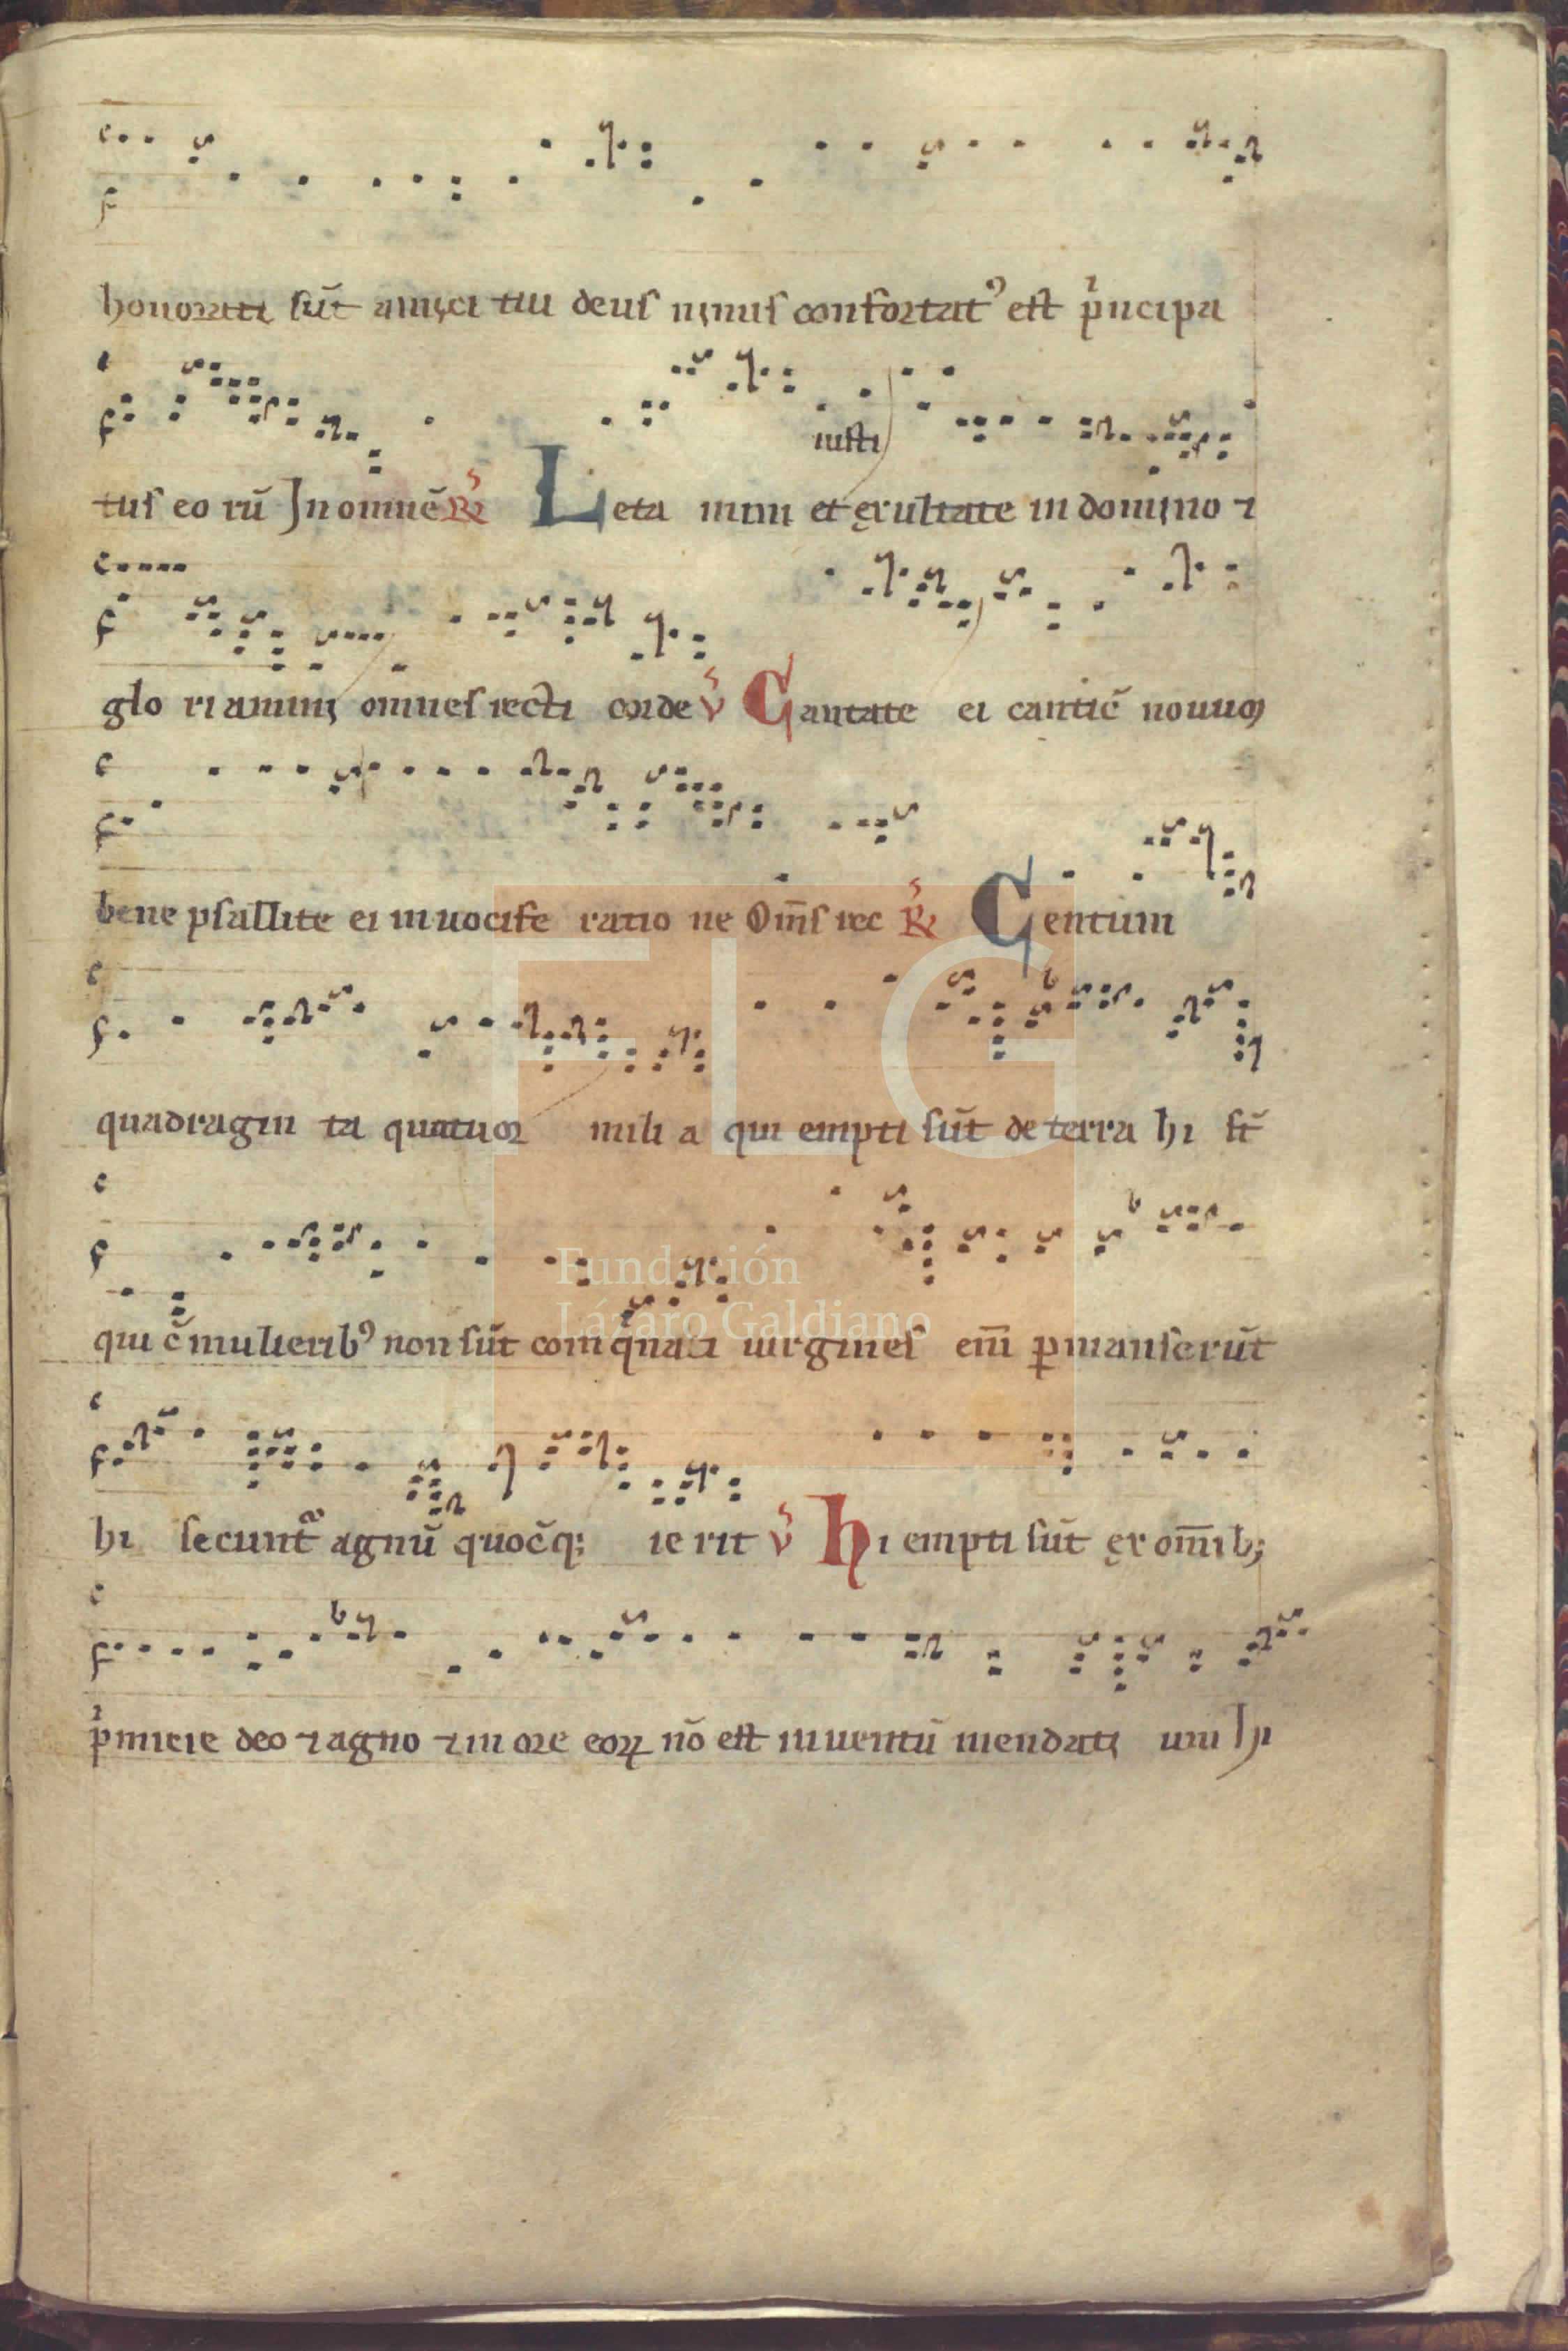 honorati sūt amici tui deus nimis confortatꝰ est pͥncipa
iusti
tus eo rū In omnē ℟ Leta mini et exultate in domino ⁊
glo riamini omnes recti corde ℣ Cantate ei cantic̄ nouum
bene psallite ei in uocife ratio ne Om̄s rec ℟ Centum
quadragin ta quatuor mili a qui empti sūt de terra hi st̄
qui c̄ mulieribꝰ non sūt com qͥnati uirgines em̄ ꝑmanserūt
hi secuntᷣ agnū quoc̄q; ierit ℣ Hi empti sūt ex om̄ib;
pͥmicie deo ⁊ agno ⁊ in ore eoꝝ nō est inuentū mendati um hi
FLG
Fundación
Lázaro Galdiano